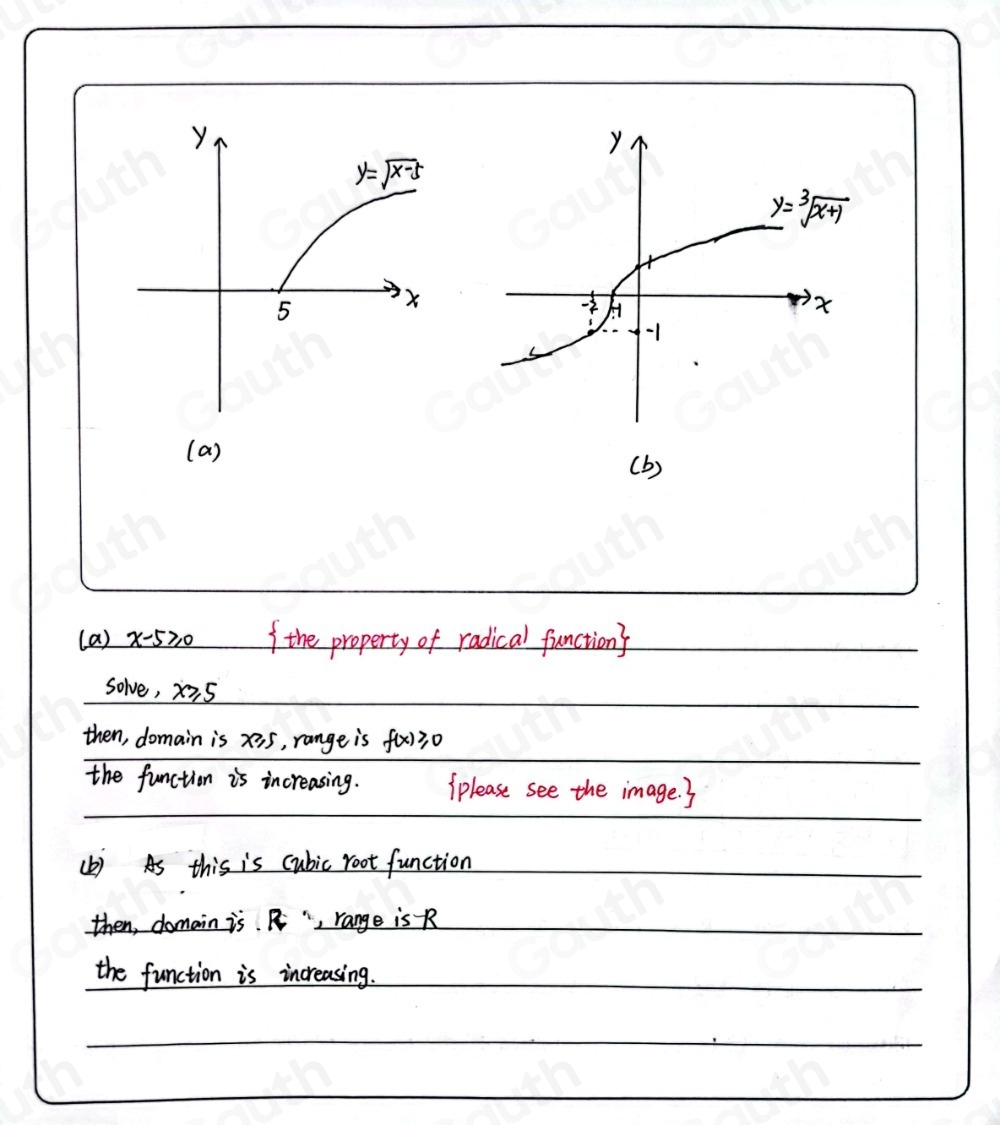 y
y=√x-5
5
x
(a)
y
y=³√x+1
1
-2
-1
-1
x
(b)
(a) x-5≥0 {the property of radical function}
Solve, x≥5
then, domain is x≥5, range is f(x)≥0
the function is increasing. {please see the image.}
(b) As this is cubic root function
then, domain is R, range is R
the function is increasing.
Gauth